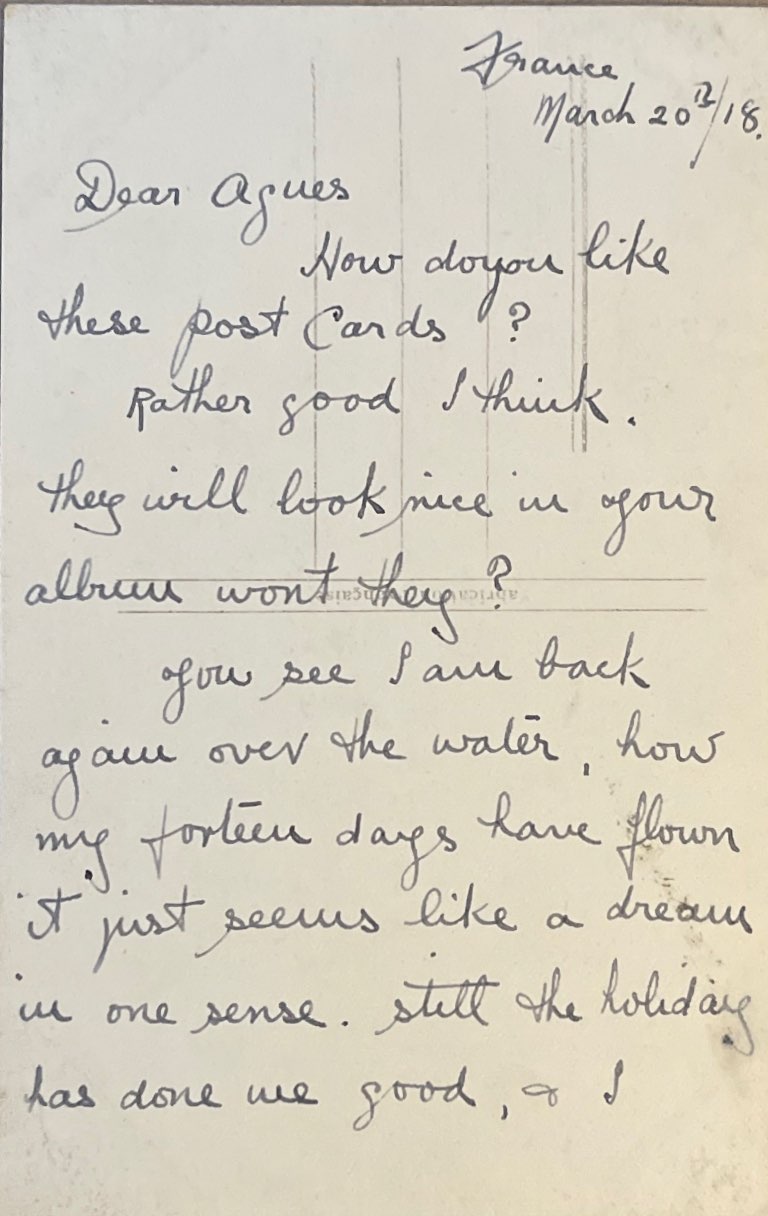 France
March 20th/18.
Dear Agnes
How do you like
these post Cards ?
Rather good I think.
they will look nice in your
album wont they ?
you see I am back
again over the water, how
my forteen days have flown
it just seems like a dream
in one sense. still the holiday
has done me good, & I